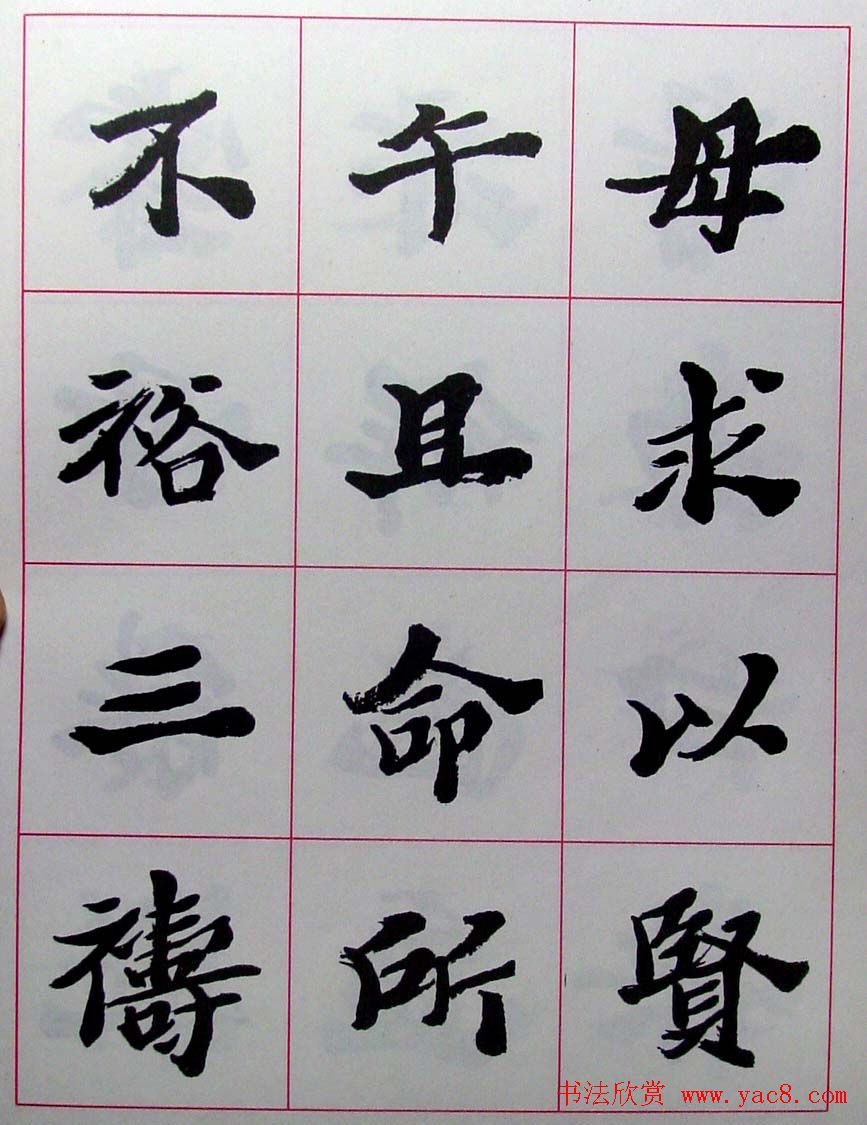 母求以賢
午且命所
不裕三禱
书法欣赏 www.yac8.com